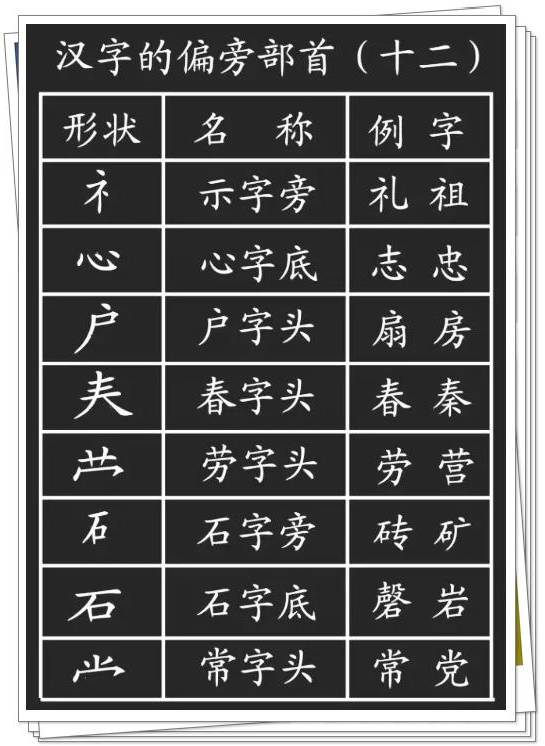 汉字的偏旁部首（十二）
形状 名 称 例 字
礻 示字旁 礼 祖
心 心字底 志 忠
户 户字头 扇 房
𡗗 春字头 春 秦
劳字头 劳 营
石 石字旁 砖 矿
石 石字底 磬 岩
常字头 常 党